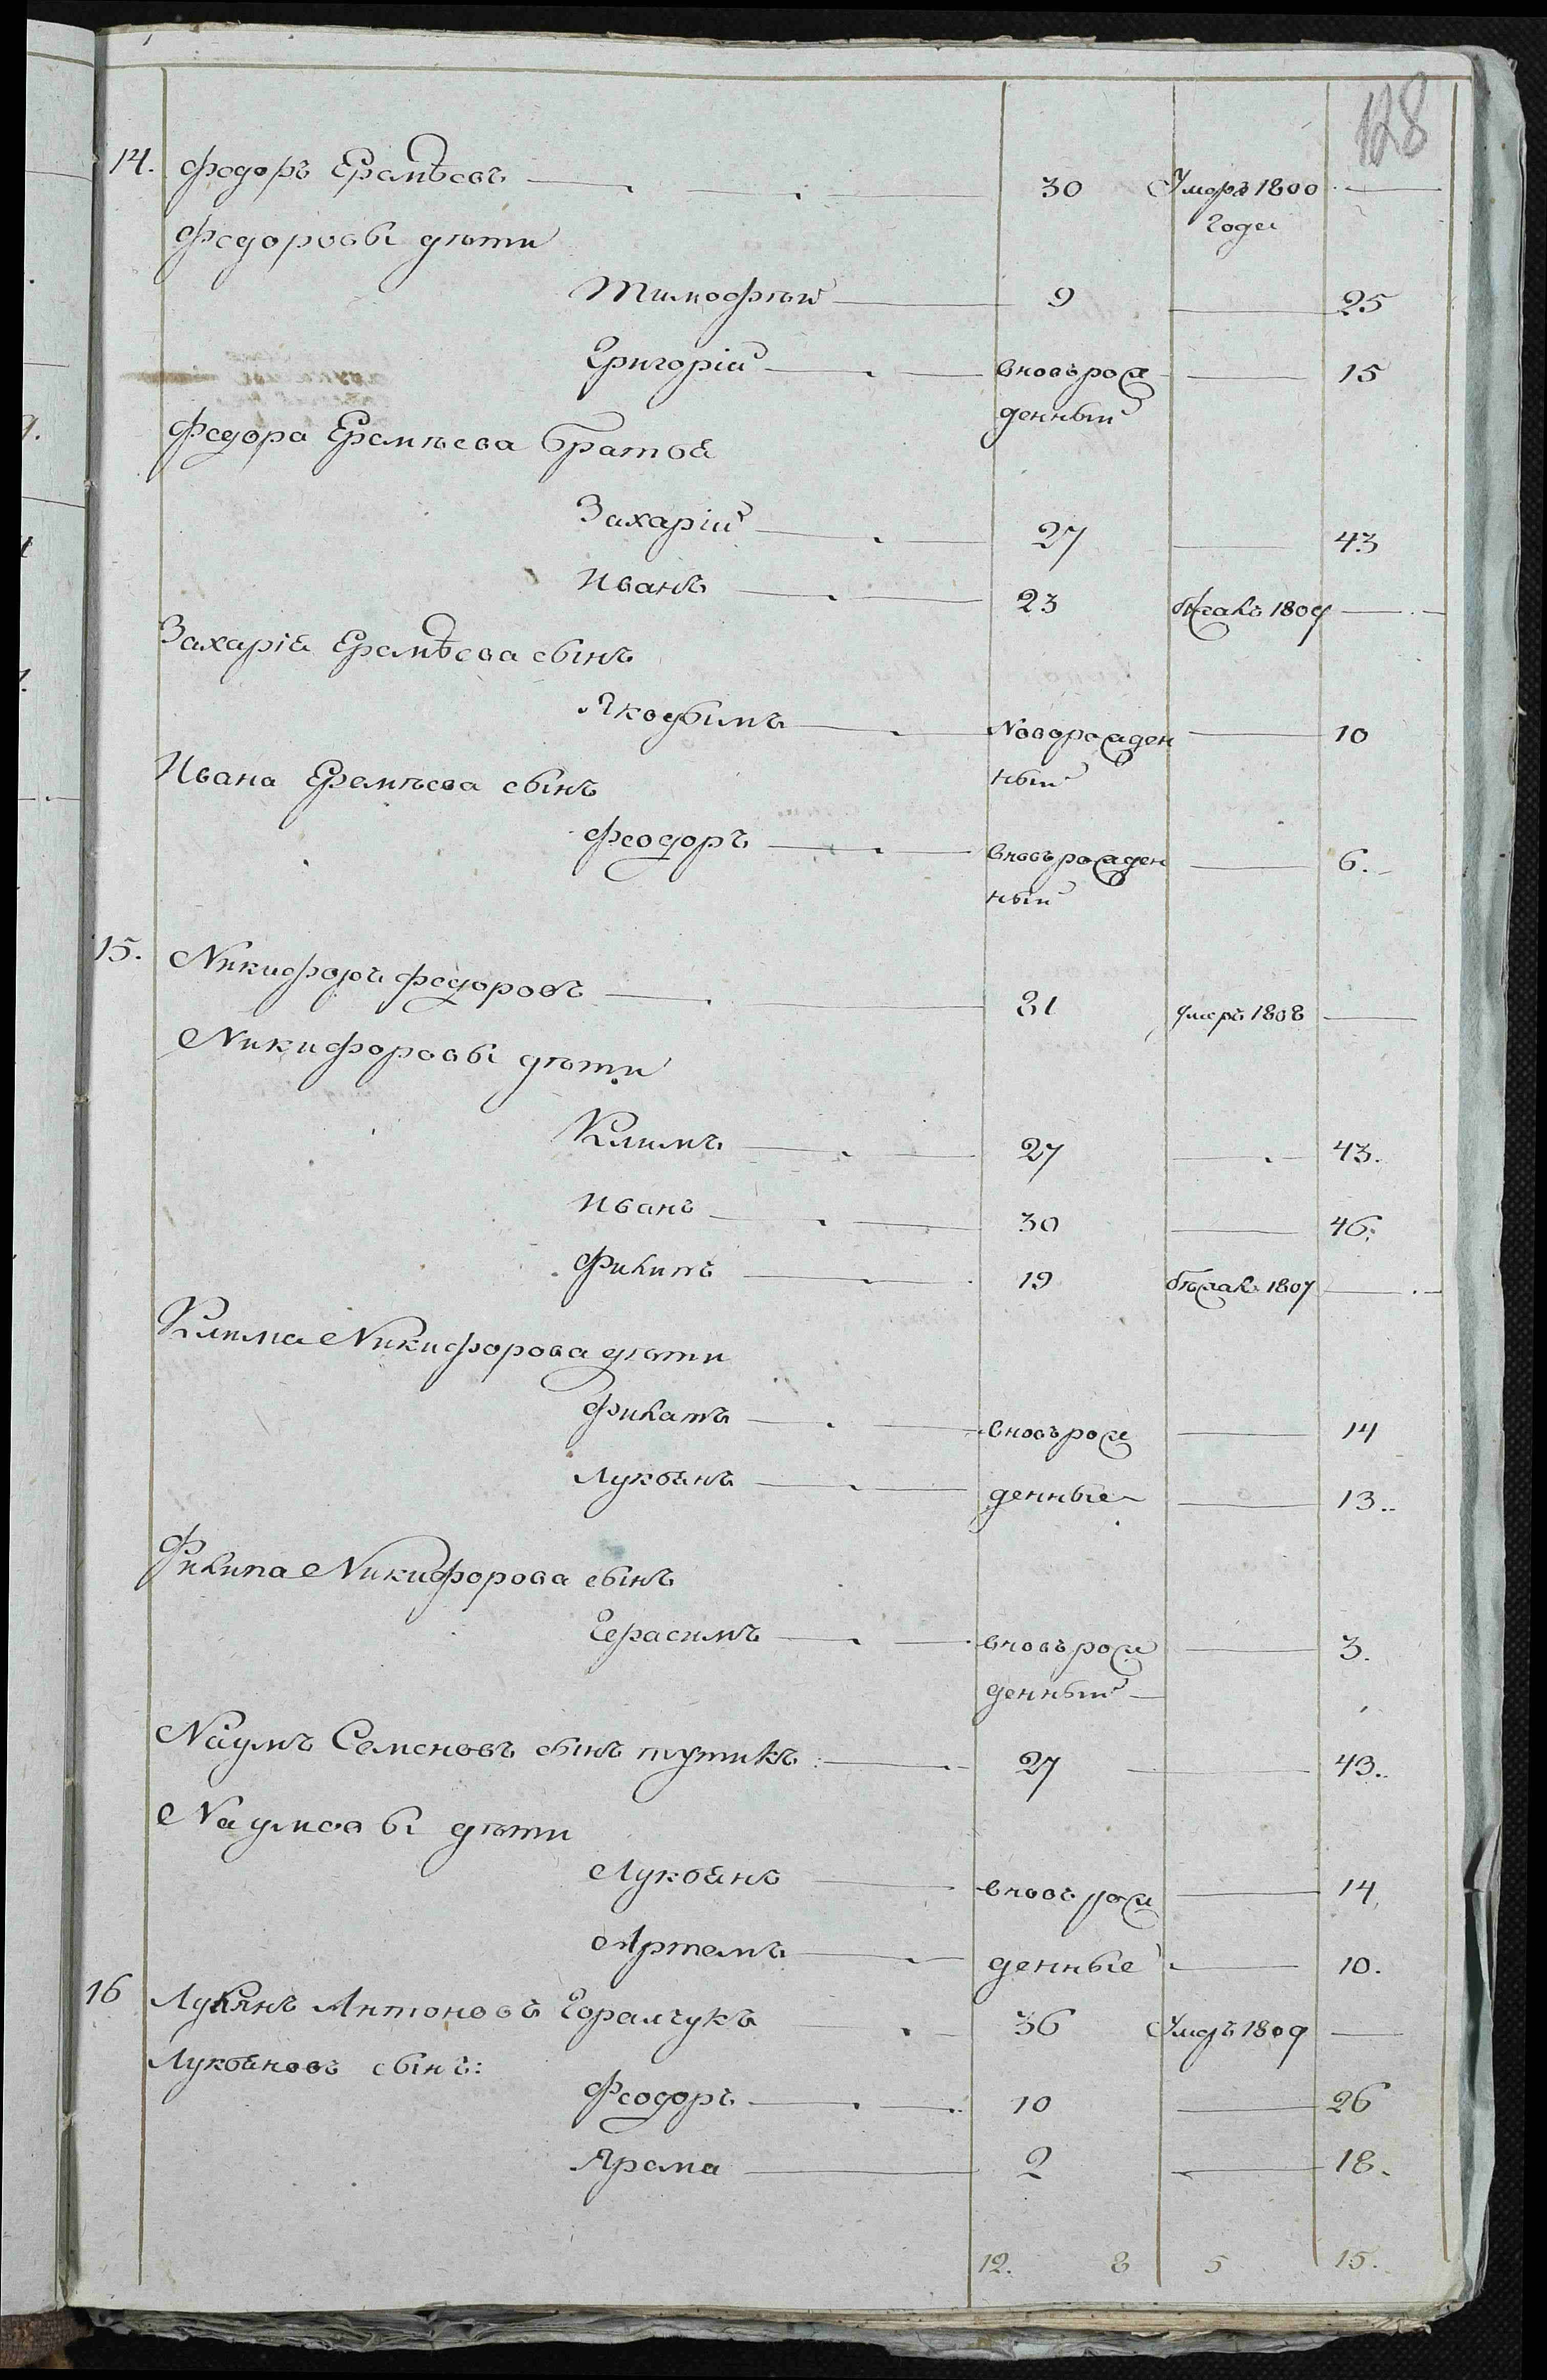 128
14. Федоръ Еремѣевъ 30 Умеръ 1800
года
Федоровы дѣти
Тимофѣй 9 25
Григорій вновьрож 15
денный
Федора Еремѣева братья
Захарій 27 43
Иванъ 23 бѣжалъ 1809
Захарія Еремѣева сынъ
Якубимъ Новорожден 10
ный
Ивана Еремѣева сынъ
Феодоръ вновьрожден 6.
ный
15. Никифоръ Федоровъ 81 умеръ 1808
Никифоровы дѣти
Климъ 27 43.
Иванъ 30 46.
Филипъ 19 бѣжалъ 1807
Клима Никифорова дѣти
Филатъ вновьрож 14
Лукьянъ денные 13.
Филипа Никифорова сынъ
Герасимъ вновьрож 3.
денный
Наумъ Семеновъ сынъ путикъ 27 43.
Наумовы дѣти
Лукьянъ вновьрож 14
Артемъ денные 10.
16 Лукянъ Антоновъ Горалчукъ 36 Умеръ 1809
Лукьяновъ сынъ:
Феодоръ 10 26
Ярема 2 18.
12. 8 5 15.